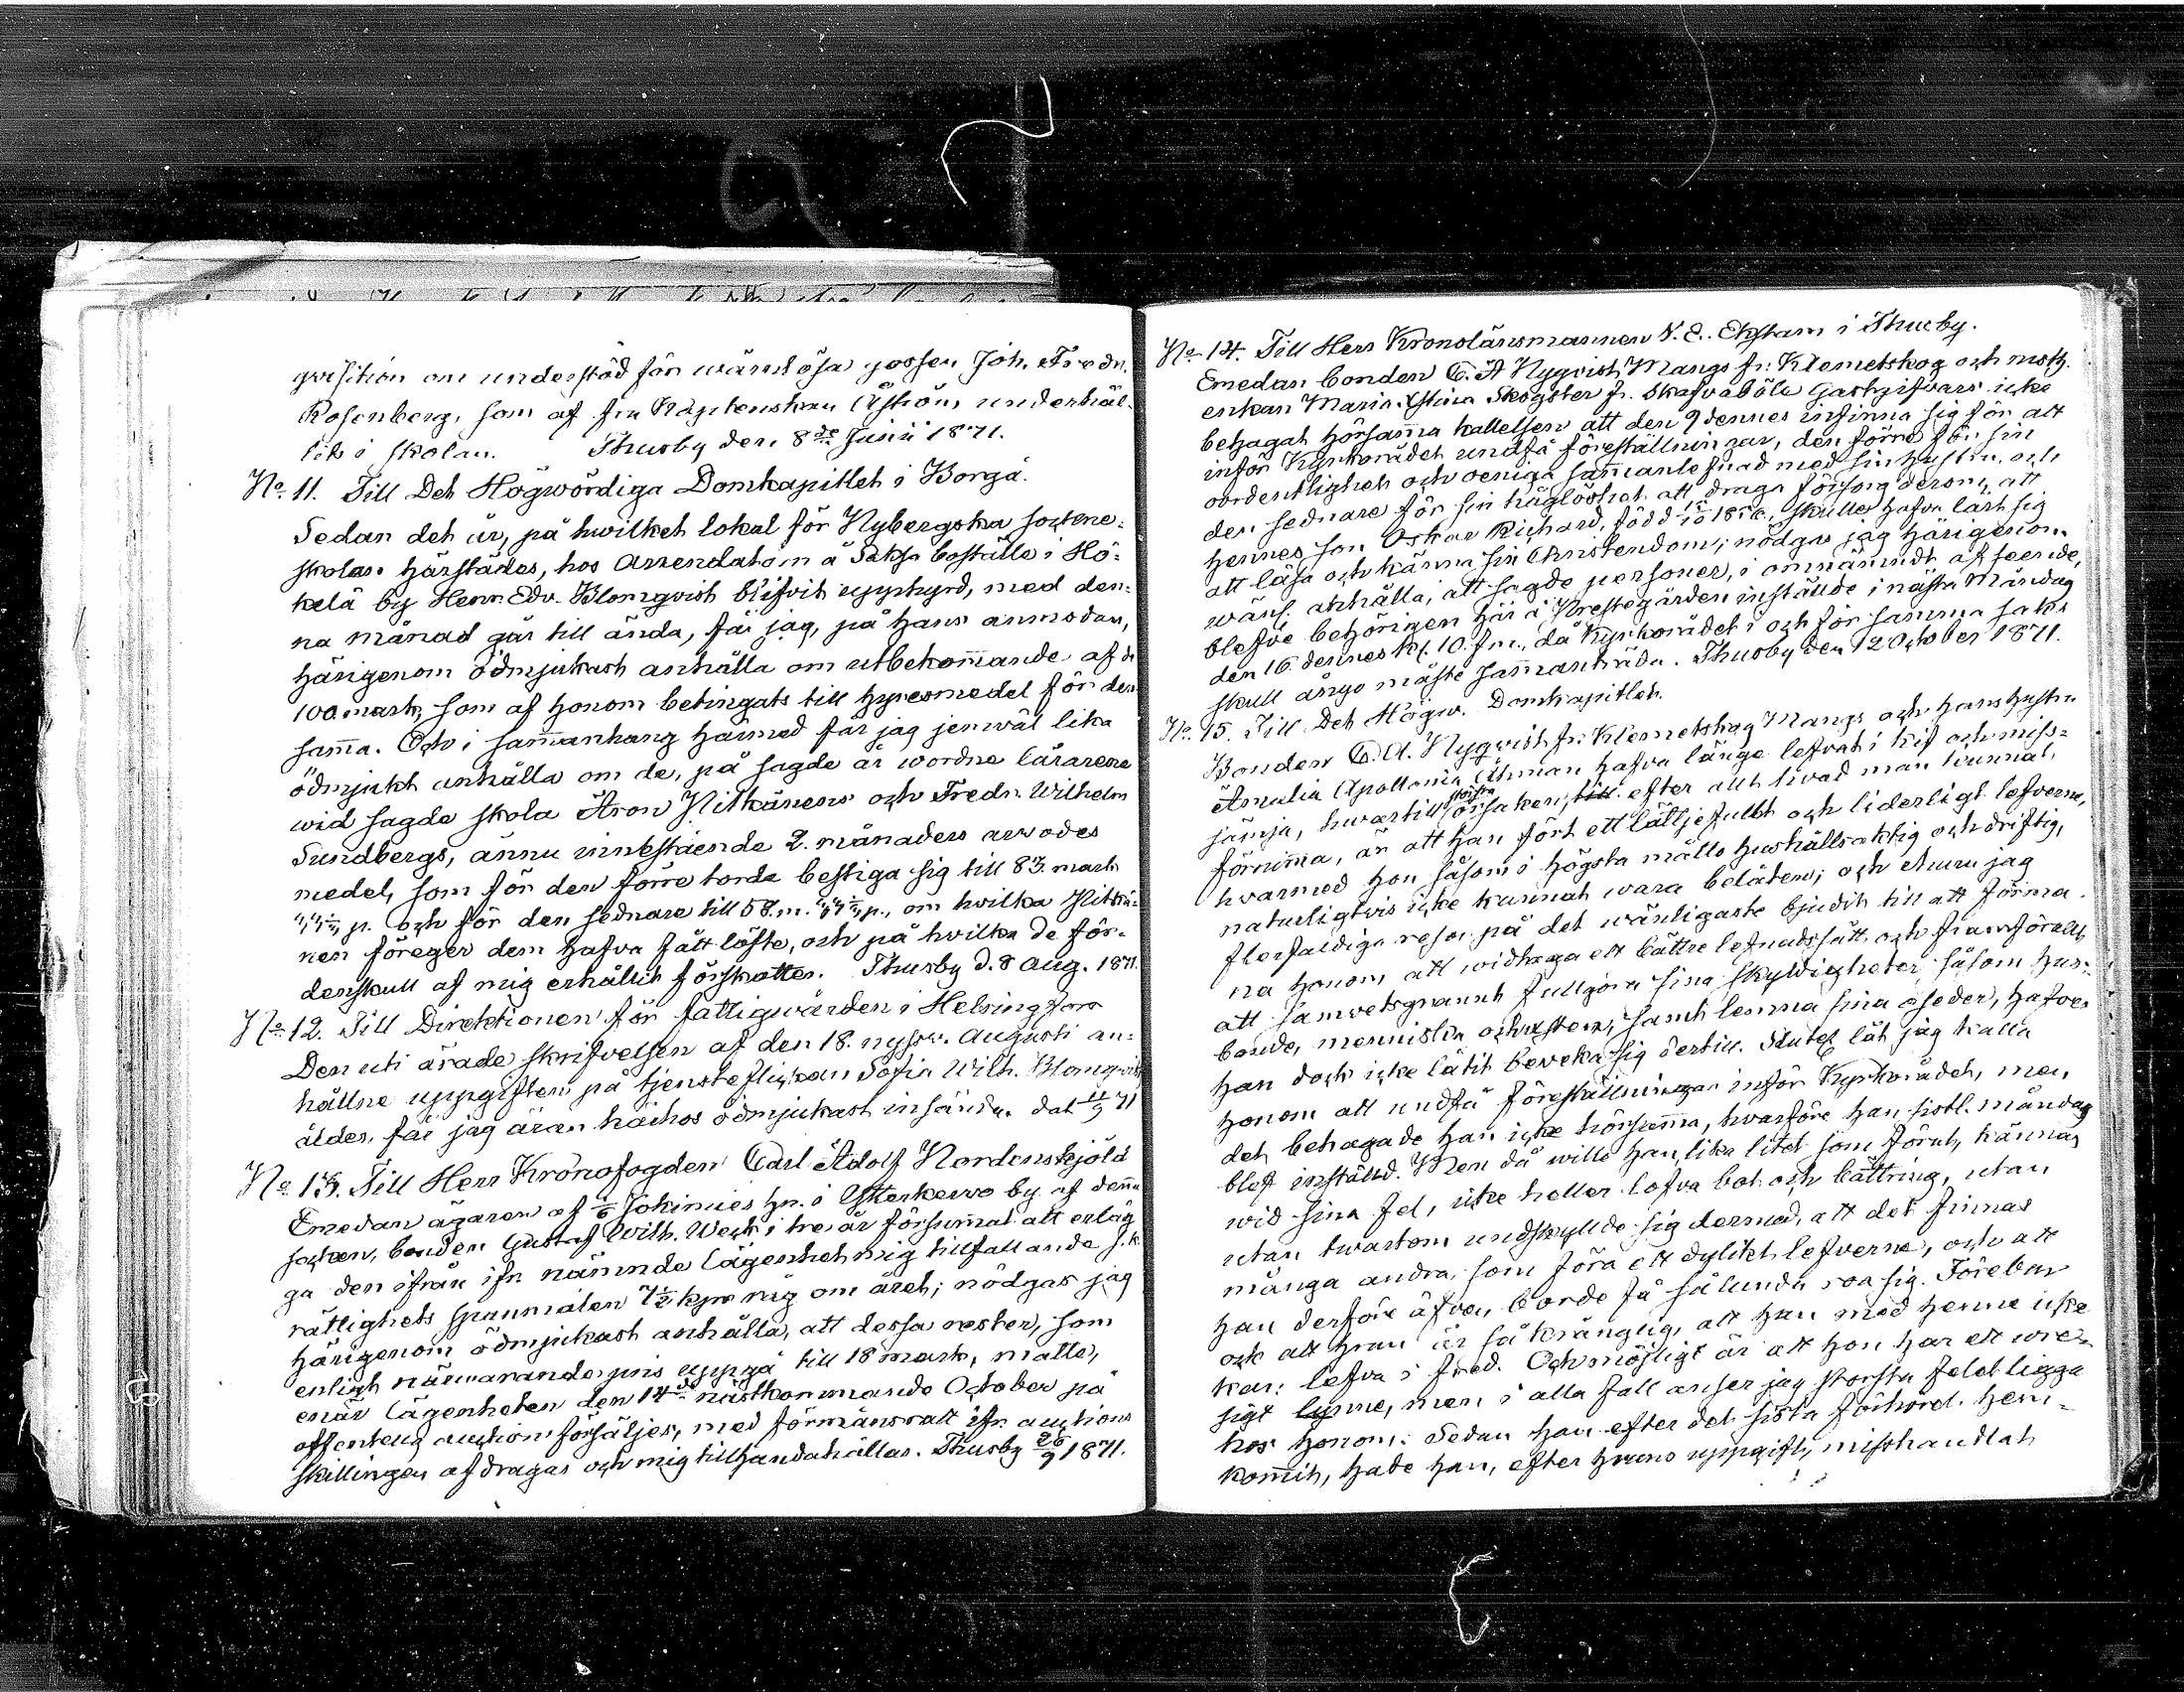 qvisition om understöd för wärnlösa gossen Joh. Fredr.
Rosenberg, som af fru Kaptenskan Åström underhål-
lits i skolan. Thusby den 8de Junii 1871.
No 11. Till Det Högwördiga Domkapitlet i Borgå.
Sedan det år, på hwilket lokal för Nybergska sockne-
skolan härstädes, hos Arrendatorn å Saksa boställe i Hö-
kelä by Henr. Edv. Blomqvist blifvit upphyrd, med den-
na månad går till ända, får jag, på hans anmodan,
härigenom ödmjukast anhålla om utbekommande af de
100 mark, som af honom betingats till hyresmedel för den-
samma. Och i sammanhang härmed får jag jemwäl lika
ödmjukt anhålla om de, på sagde år wordne lärarene
wid sagde skola Aron Pitkänens och Fredr. Wilhelm
Sundbergs, ännu innestående 2. månaders arvodes
medel, som för den förre torde bestiga sig till 83. mark
p. och för den sednare till 58. m. p., om hwilka Pitkä-
nen föreger dem hafva fått löfte, och på hwilka de för-
denskull af mig erhållit förskotter. Thusby d. 8 Aug. 1871.
No 12. Till Direktionen för fattigwården i Helsingfors
Den uti ärade skrifvelsen af den 18. nyssw. Augusti an-
hållne uppgiften på tjensteflickan Sofia Wilh. Blomqvists
ålder, får jag äran härhos ödmjukast insända. dat 11/9 71
No 13. Till Herr Kronofogden Carl Adolf Nordenskjöld
Emedan ägaren af 1/6 Jokimies hn. i Ytterkerwo by af denna
socken, bonden Gustaf Wilh. Weck i tre år försummat att erläg-
ga den ifrån ifr. nämnde lägenhet mig tillfallande s.k.
rättighets spannmålen 7½ kpr råg om året; nödgas jag
härigenom ödmjukast anhålla, att dessa rester, som
enligt närwarande pris uppgå till 18 mark, måtte,
enär lägenheten den 14de nästkommande October på
offentelig auction försäljes, med förmånsrätt ifr. auctions
skillingen afdragas och mig tillhandahållas. Thusby 26/9 1871.
No 14. Till Herr Kronolänsmannen N. E. Ekstam i Thusby.
Emedan bonden C. A Nyqvist, Mangs fr. Klemetskog och
enkan Maria Stina Skogster fr. Skafvaböle Gästgifvars icke
behagat hörsamma kallelsen att den 9 dennes infinna sig för att
inför Kyrkorådet undfå föreställningar, den förre för sin
oordentlighet och oeniga sammanlefnad med sin hustru, och
den sednare för sin håglöshet att draga försorg derom, att
hennes son Oskar Richard, född skulle hafva lärt sig
att läsa och känna sin Christendom; nödgas jag härigenom
wänl. anhålla, att sagde personer, i omnämndt afseende,
blefve behörigen här å Prestegården inställde i nästa Måndag
den 16. dennes kl. 10. f.m., då Kyrkorådet i och för samma saks
skull ånyo måste sammanträda. Thusby den 12 October 1871.
No 15. Till Det Högw. Domkapitlet.
Bonden C. A. Nyqvist fr. Klemetskog Mangs och hans hustru
Amalia Apollonia Öhman hafva länge lefvat i kif och miss-
sämja, hwartill största orsaken, till efter allt hwad man kunnat
förnimma, är att han fört ett lättjefullt och liderligt lefverne,
hwarmed hon såsom i högsta måtto hushållsaktig och driftig,
naturligtvis icke kunnat wara belåten; och ehuru jag
flerfaldiga resor på det wänligaste bjudit till att förma-
na honom att widtaga ett bättre lefnadssätt och framförallt
att samwetsgrannt fullgöra sina skyldigheter såsom hus-
bonde, menniska och christen, samt lemna sina oseder, hafver
han dock icke låtit beveka sig dertill. Slutel. lät jag kalla
honom att undfå föreställningar inför Kyrkorådet, men
det behagade han icke hörsamma, hwarföre han sistl. måndag
blef inställd. Men då wille han, lika litet som förut, kännas
wid sina fel, icke heller lofva bot och bättring, utan
utan twärtom undskyllde sig dermed, att det finnas
många andra, som föra ett dylikt lefverne, och att
han derföre äfven borde få sålunda roa sig. Förebar
ock att hon är så krånglig, att han med henne icke
kan lefva i fred. Och möjligt är att hon har ett wre-
sigt lynne, men i alla fall anser jag största felet ligga
hos honom. Sedan han efter det sista förhöret hem-
kommit, hade han, efter hennes uppgift, misshandlat